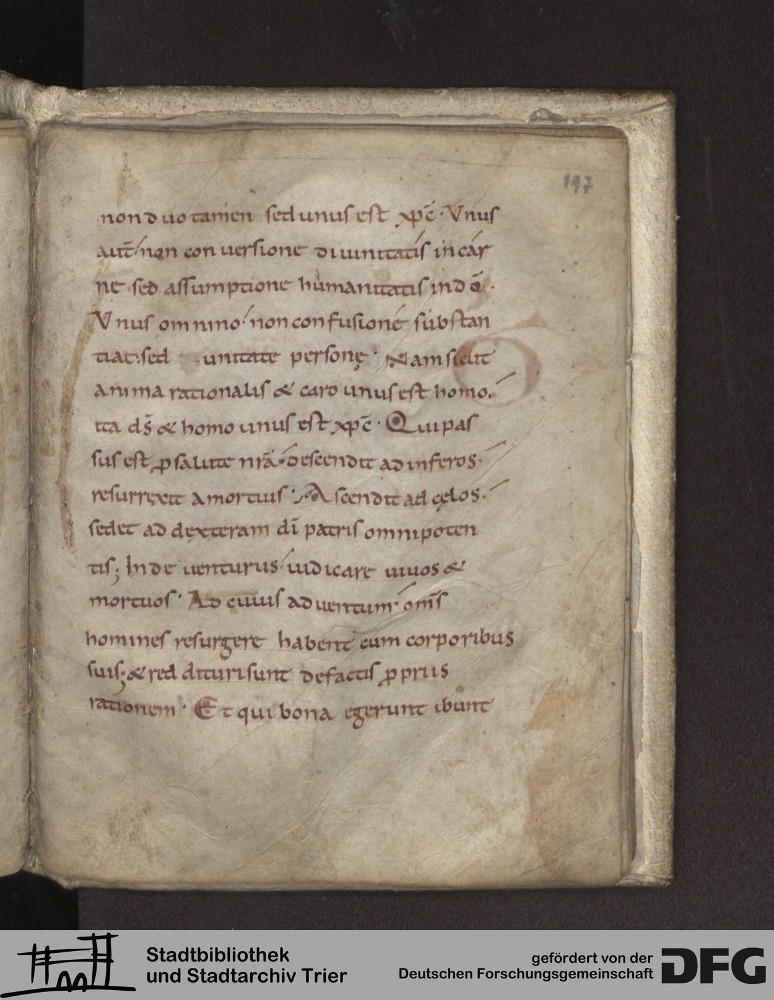 197
non duo tamen sed unus est xp̄c· Vnus
aut̄ non conuersione diuinitatis in car
ne sed assumptione humanitatis in dō·
Vnus omnino non confusione substan
tiae sed unitate personę· Nam sicut
anima rationalis & caro unus est homo·
ita d̄s & homo unus est xp̄c· Qui pas
sus est ꝓ salute nrā descendit ad inferos·
resurrexit a mortuis· Ascendit ad cęlos·
sedet ad dexteram dī patris omnipoten
tis; Inde uenturus iudicare uiuos &
mortuos· Ad cuius aduentum om̄s
homines resurgere habent cum corporibus
suis; & reddituri sunt de factis ꝓpriis
rationem· Et qui bona egerunt ibunt
Stadtbibliothek
und Stadtarchiv Trier
gefördert von der
Deutschen Forschungsgemeinschaft
DFG